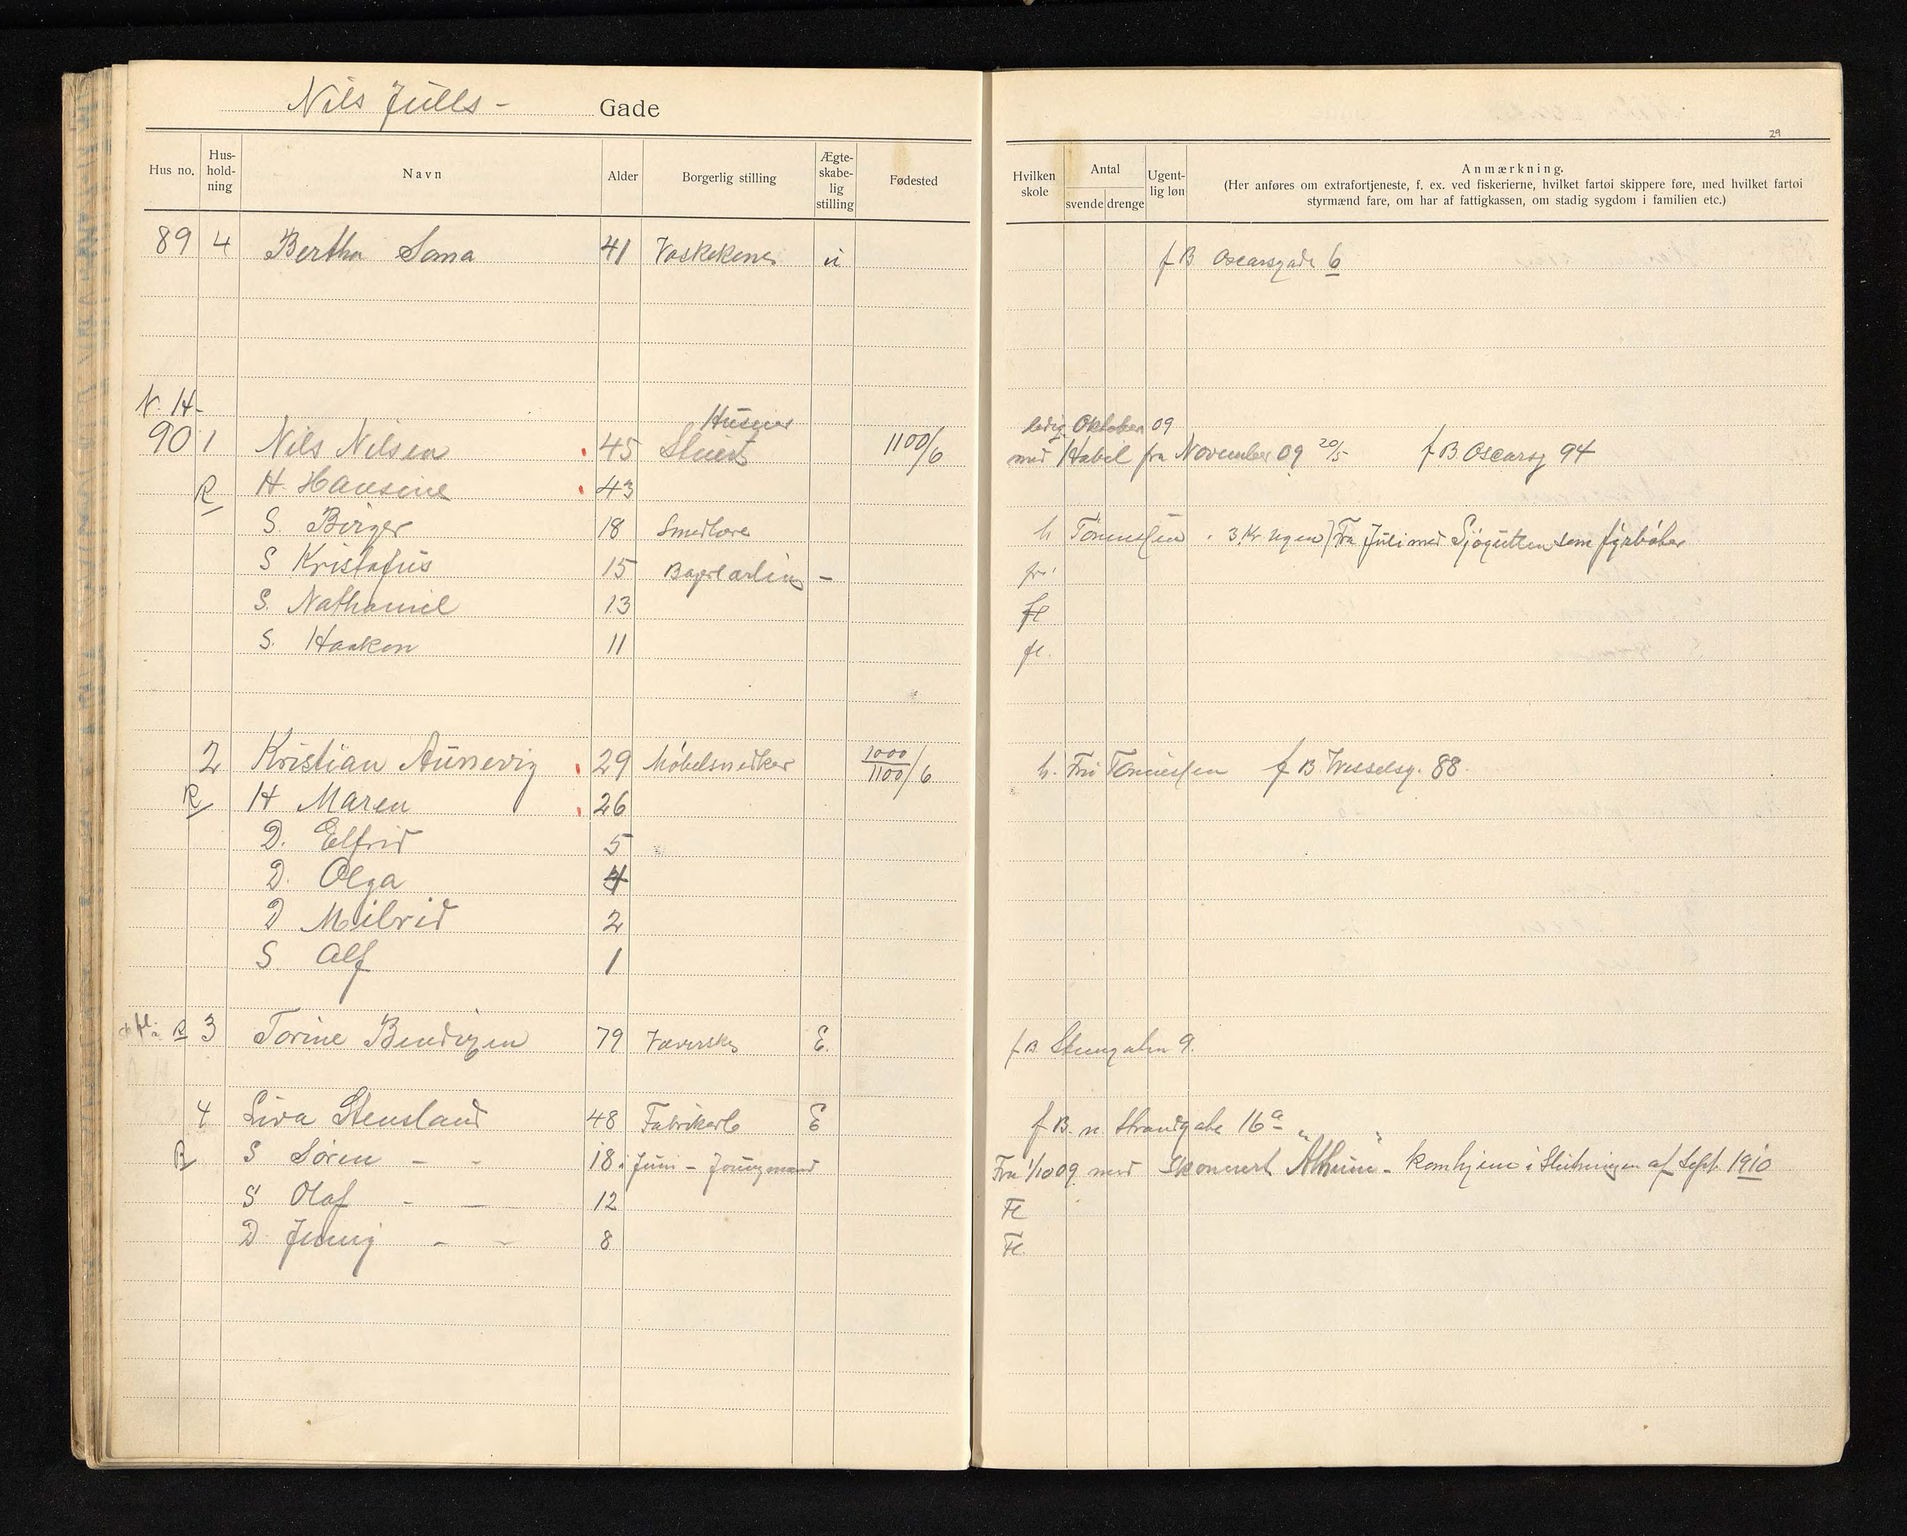 Nils Juels - Gade
29
Hus no. Hus-holdning Navn Alder Borgerlig stilling Ægte-skabe-lig stilling Fødested Hvilken skole Antal svende drenge Ugent-lig løn Anmærkning.
(Her anføres om extrafortjeneste, f. ex. ved fiskerierne, hvilket fartøi skippere føre, med hvilket fartøi
styrmænd fare, om har af fattigkassen, om stadig sygdom i familien etc.)
89 4 Bertha Soma 41 Vaskekone u f B Oscarsgade 6
N. H-
Huseier ledig Oktober 09
90 1 Nils Nilsen 45 Stuert 1100/6 med Habil fra November 09 20/5 f B Oscarsg 94
R H. Hansine 43
S. Birger 18 Smedlære h Tönnessen . 3 Kr ugen) Fra Juli med Sjøgutten som fyrbøter
S Kristofus 15 fri
S. Nathaniel 13 Fl
S. Haakon 11 fl.
2 Kristian Aunevig 29 Møbelsnedker 1000/1100/6 h. Tönnessen f B Wesselsg. 88
R H Maren 26
D. Elfrid 5
D. Olga 4
D Milvrid 2
S Alf 1
R 3 Torine Bendixen 79 Væverske E. f B. 9.
4 Siva Stensland 48 Fabrikarb E f B. n Strandgade 16a
R S Søren - - 18 i Juni - Joungmand Fra 1/10 09 med Skonnert "Athene" - kom hjem i Slutningen af Sept. 1910
S Olaf - - 12 Fl
D. Jenny - - 8 Fl.